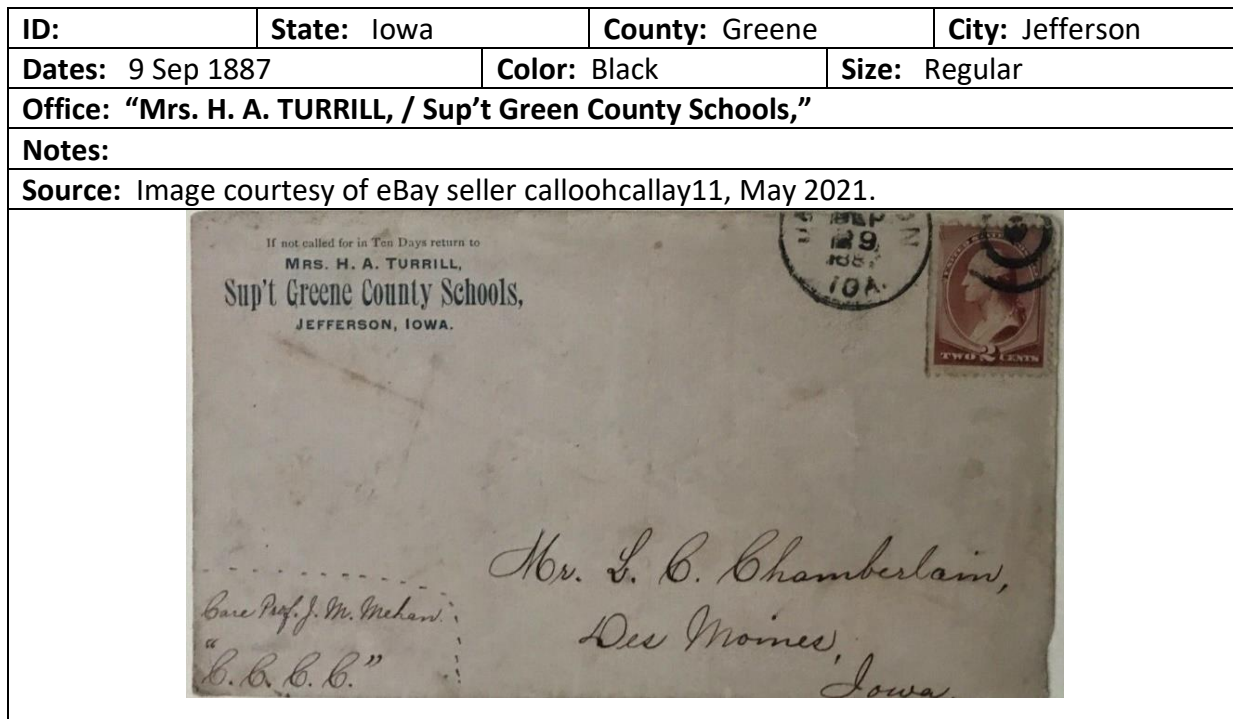 ID: State: Iowa County: Greene City: Jefferson
Dates: 9 Sep 1887 Color: Black Size: Regular
Office: “Mrs. H. A. TURRILL, / Sup’t Green County Schools,”
Notes:
Source: Image courtesy of eBay seller calloohcallay11, May 2021.
If not called for in Ten Days return to
MRS. H. A. TURRILL,
Sup't Greene County Schools,
JEFFERSON, IOWA.
SEP
9
188
IOA.
TWO 2 CENTS
Mr. L. C. Chamberlain,
Des Moines,
Iowa.
Care Prof. J. M. Mehan.
"C. C. C. C."